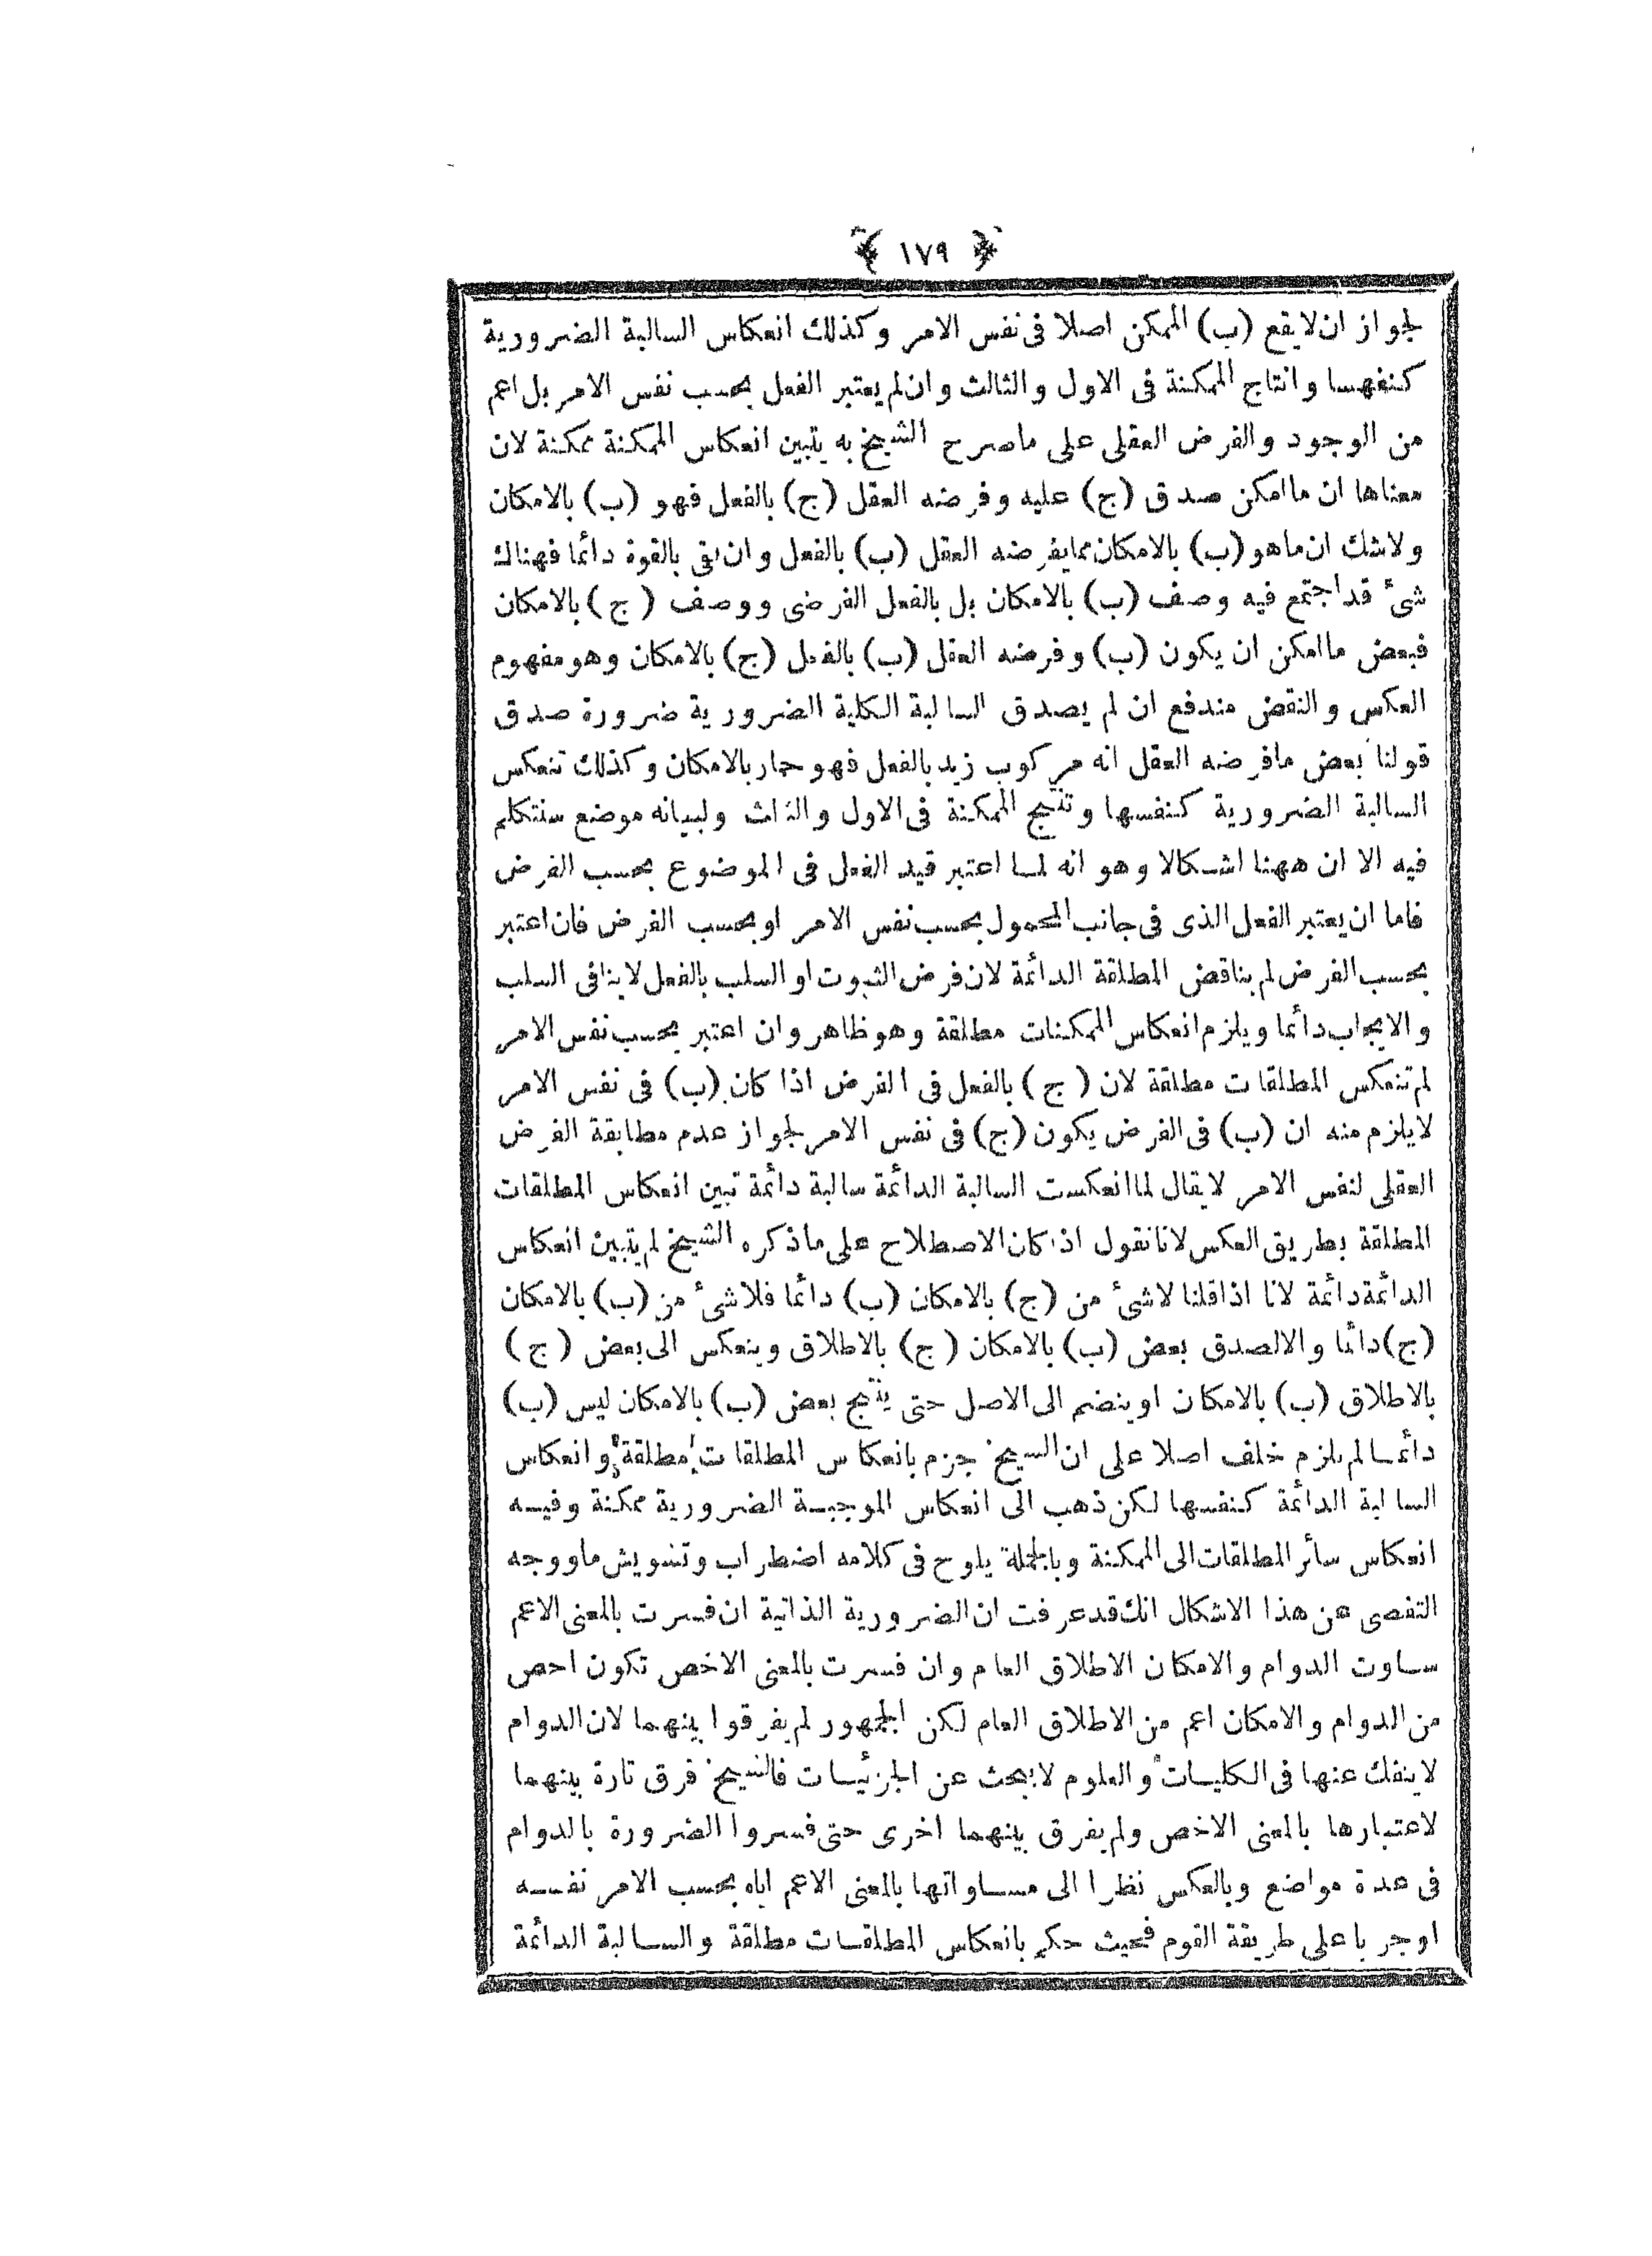 ﴿ ١٧٩ ﴾
لجواز ان لايقع (ب) الممكن اصلا فى نفس الامر وكذلك انعكاس السالبة الضرورية
كنفهسا وانتاج الممكنة فى الاول والثالث وان لم يعتبر الفعل بحسب نفس الامر بل اعم
من الوجود والفرض العقلى على ماصرح الشيخ به يتبين انعكاس الممكنة ممكنة لان
معناها ان ما امكن صدق (ج) عليه وفرضه العقل (ج) بالفعل فهو (ب) بالامكان
ولاشك ان ماهو (ب) بالامكان مما يفرضه العقل (ب) بالفعل وان بقى بالقوة دائما فهناك
شئ قد اجتمع فيه وصف (ب) بالامكان بل بالفعل الفرضى ووصف (ج) بالامكان
فبعض ما امكن ان يكون (ب) وفرضه العقل (ب) بالفعل (ج) بالامكان وهو مفهوم
العكس والنقض مندفع ان لم يصدق السالبة الكلية الضرورية ضرورة صدق
قولنا بعض مافرضه العقل انه مركوب زيد بالفعل فهو حمار بالامكان وكذلك تنعكس
السالبة الضرورية كنفسها وتنتج الممكنة فى الاول والثالث ولبيانه موضع سنتكلم
فيه الا ان ههنا اشكالا وهو انه لما اعتبر قيد الفعل فى الموضوع بحسب الفرض
فاما ان يعتبر الفعل الذى فى جانب المحمول بحسب نفس الامر او بحسب الفرض فان اعتبر
بحسب الفرض لم يناقض المطلقة الدائمة لان فرض الثبوت او السلب بالفعل لاينافى السلب
والايجاب دائما ويلزم انعكاس الممكنات مطلقة وهو ظاهر وان اعتبر بحسب نفس الامر
لم تنعكس المطلقات مطلقة لان (ج) بالفعل فى الفرض اذا كان (ب) فى نفس الامر
لايلزم منه ان (ب) فى الفرض يكون (ج) فى نفس الامر لجواز عدم مطابقة الفرض
العقلى لنفس الامر لايقال لما انعكست السالبة الدائمة سالبة دائمة تبين انعكاس المطلقات
المطلقة بطريق العكس لانا نقول اذا كان الاصطلاح على ماذكره الشيخ لم يتبين انعكاس
الدائمة دائمة لانا اذا قلنا لاشئ من (ج) بالامكان (ب) دائما فلاشئ من (ب) بالامكان
(ج) دائما والالصدق بعض (ب) بالامكان (ج) بالاطلاق وينعكس الى بعض (ج)
بالاطلاق (ب) بالامكان او ينضم الى الاصل حتى ينتج بعض (ب) بالامكان ليس (ب)
دائما لم يلزم خلف اصلا على ان الشيخ جزم بانعكاس المطلقات مطلقة وانعكاس
السالبة الدائمة كنفسها لكن ذهب الى انعكاس الموجبة الضرورية ممكنة وفيه
انعكاس سائر المطلقات الى الممكنة وبالجملة يلوح فى كلامه اضطراب وتشويش ما ووجه
التفصى عن هذا الاشكال انك قد عرفت ان الضرورية الذاتية ان فسرت بالمعنى الاعم
ساوت الدوام والامكان الاطلاق العام وان فسرت بالمعنى الاخص تكون احص
من الدوام والامكان اعم من الاطلاق العام لكن الجمهور لم يفرقوا بينهما لان الدوام
لاينفك عنها فى الكليات والعلوم لايبحث عن الجزئيات فالشيخ فرق تارة بينهما
لاعتبارها بالمعنى الاخص ولم يفرق بينهما اخرى حتى فسروا الضرورة بالدوام
فى عدة مواضع وبالعكس نظرا الى مساواتها بالمعنى الاعم اياه بحسب الامر نفسه
اوجريا على طريقة القوم فحيث حكم بانعكاس المطلقات مطلقة والسالبة الدائمة